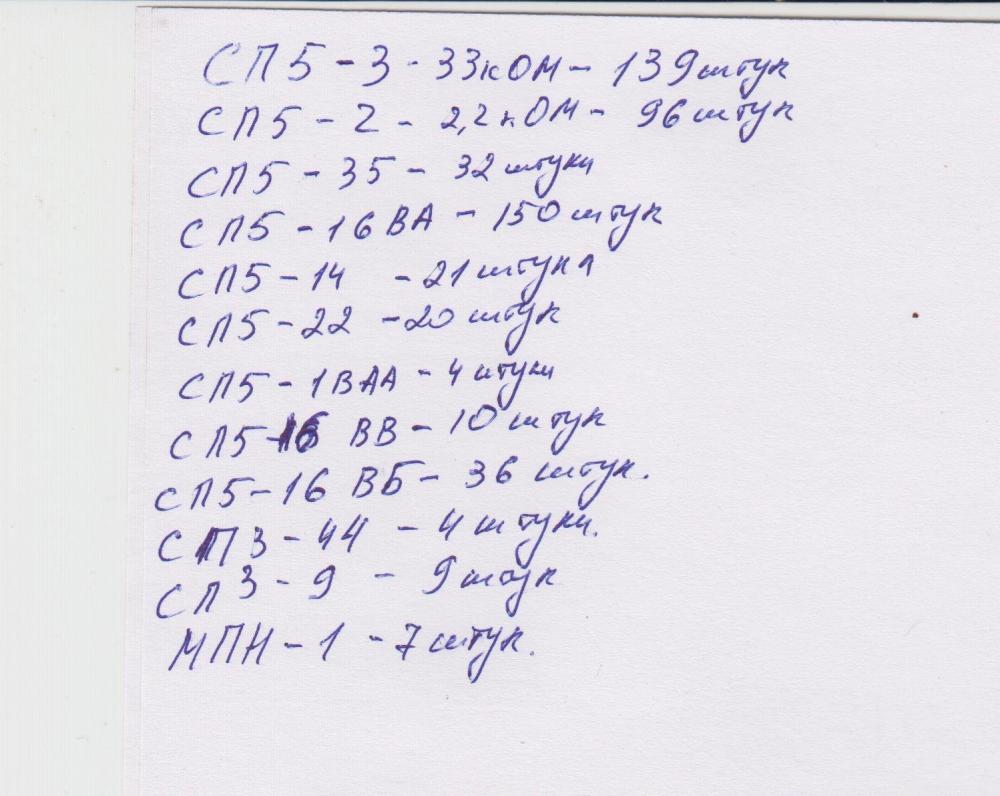 СП5 - 3 - 33кОМ - 139 штук
СП5 - 2 - 2,2 кОМ - 96 штук
СП5 - 35 - 32 штуки
СП5 - 16 ВА - 150 штук
СП5 - 14 - 21 штука
СП5 - 22 - 20 штук
СП5 - 1ВАА - 4 штуки
СП5 - 16 ВВ - 10 штук
СП5 - 16 ВБ - 36 штук.
СП3 - 44 - 4 штуки.
СП3 - 9 - 9 штук
МПН - 1 - 7 штук.